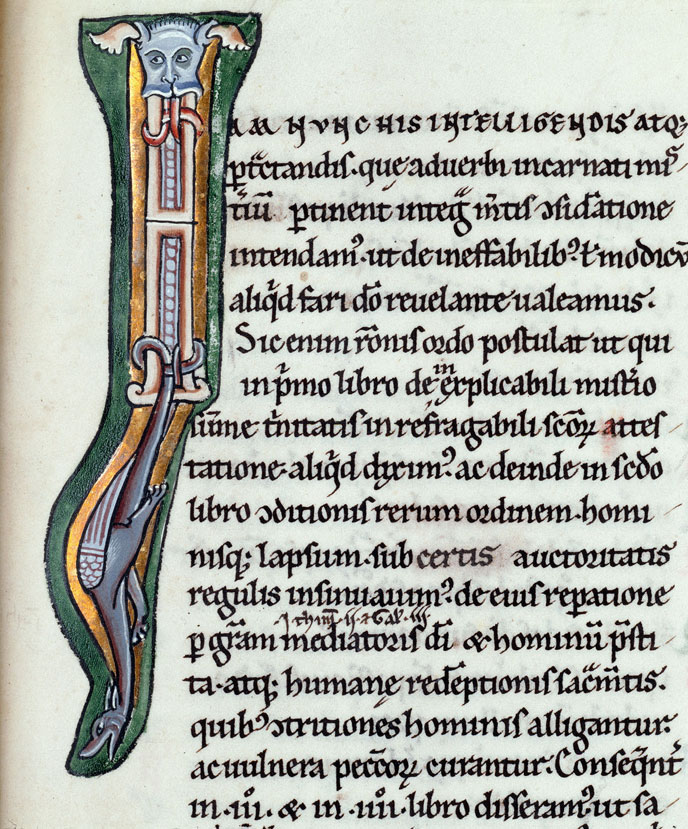 IAM NVNC HIS INTELLIGENDIS ATQ;
ꝑt̃ctandis. que ad uerbi incarnati misᵗ͛
tiũ ꝑtinent integᵃ m̃tis ↄsid̃atione
intendam᷒. ut de ineffabilib᷒ ł modicũ
aliqͥd fari d̃o reuelante ualeamus.
Sic enim r̃onis ordo postulat ut qui
in pͥmo libro de inexplicabili mist̃io
sũme tͥnitatis in refͣgabili sc̃oꝝ attes
tatione aliqͥd dixim᷒. ac deinde in sc̃do
libro ↄditionis rerum ordinem. homi
nisq; lapsum. sub certis auctoritatis
regulis insinuauim᷒. de eius reꝑatione
.I. thim̃. ii. a Gał. iii.
ꝑ gr̃am mediatoris di̅ & hominũ p̃sti
ta. atq; humanę red̃eptionis sac̃m̃tis.
quib᷒ ↄtritiones hominis alligantur.
ac uulnera pecc̃oꝝ curantur. Conseq̃nt͛
in .iii. & in .iiii. libro disseram᷒. ut sa